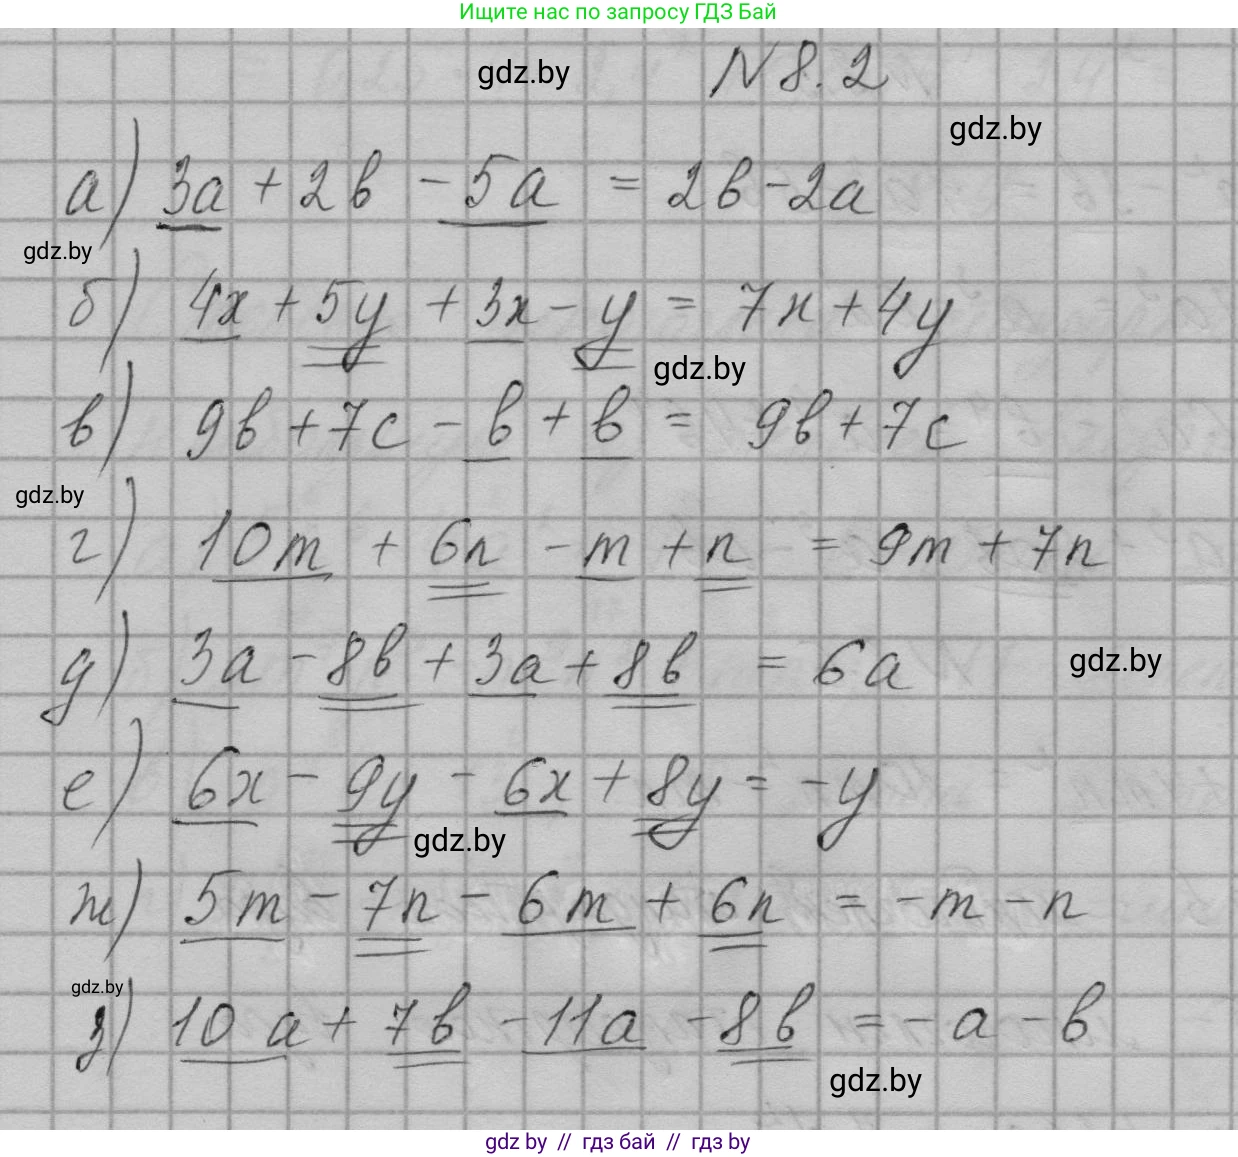 Ищите нас по запросу ГДЗ Бай
gdz.by
N 8.2
gdz.by
а) 3a + 2b - 5a = 2b - 2a
gdz.by
б) 4x + 5y + 3x - y = 7x + 4y
gdz.by
в) 9b + 7c - b + b = 9b + 7c
gdz.by
г) 10m + 6n - m + n = 9m + 7n
д) 3a - 8b + 3a + 8b = 6a
gdz.by
е) 6x - 9y - 6x + 8y = -y
gdz.by
ж) 5m - 7n - 6m + 6n = -m - n
gdz.by
з) 10a + 7b - 11a - 8b = -a - b
gdz.by
gdz by // гдз бай // гдз by